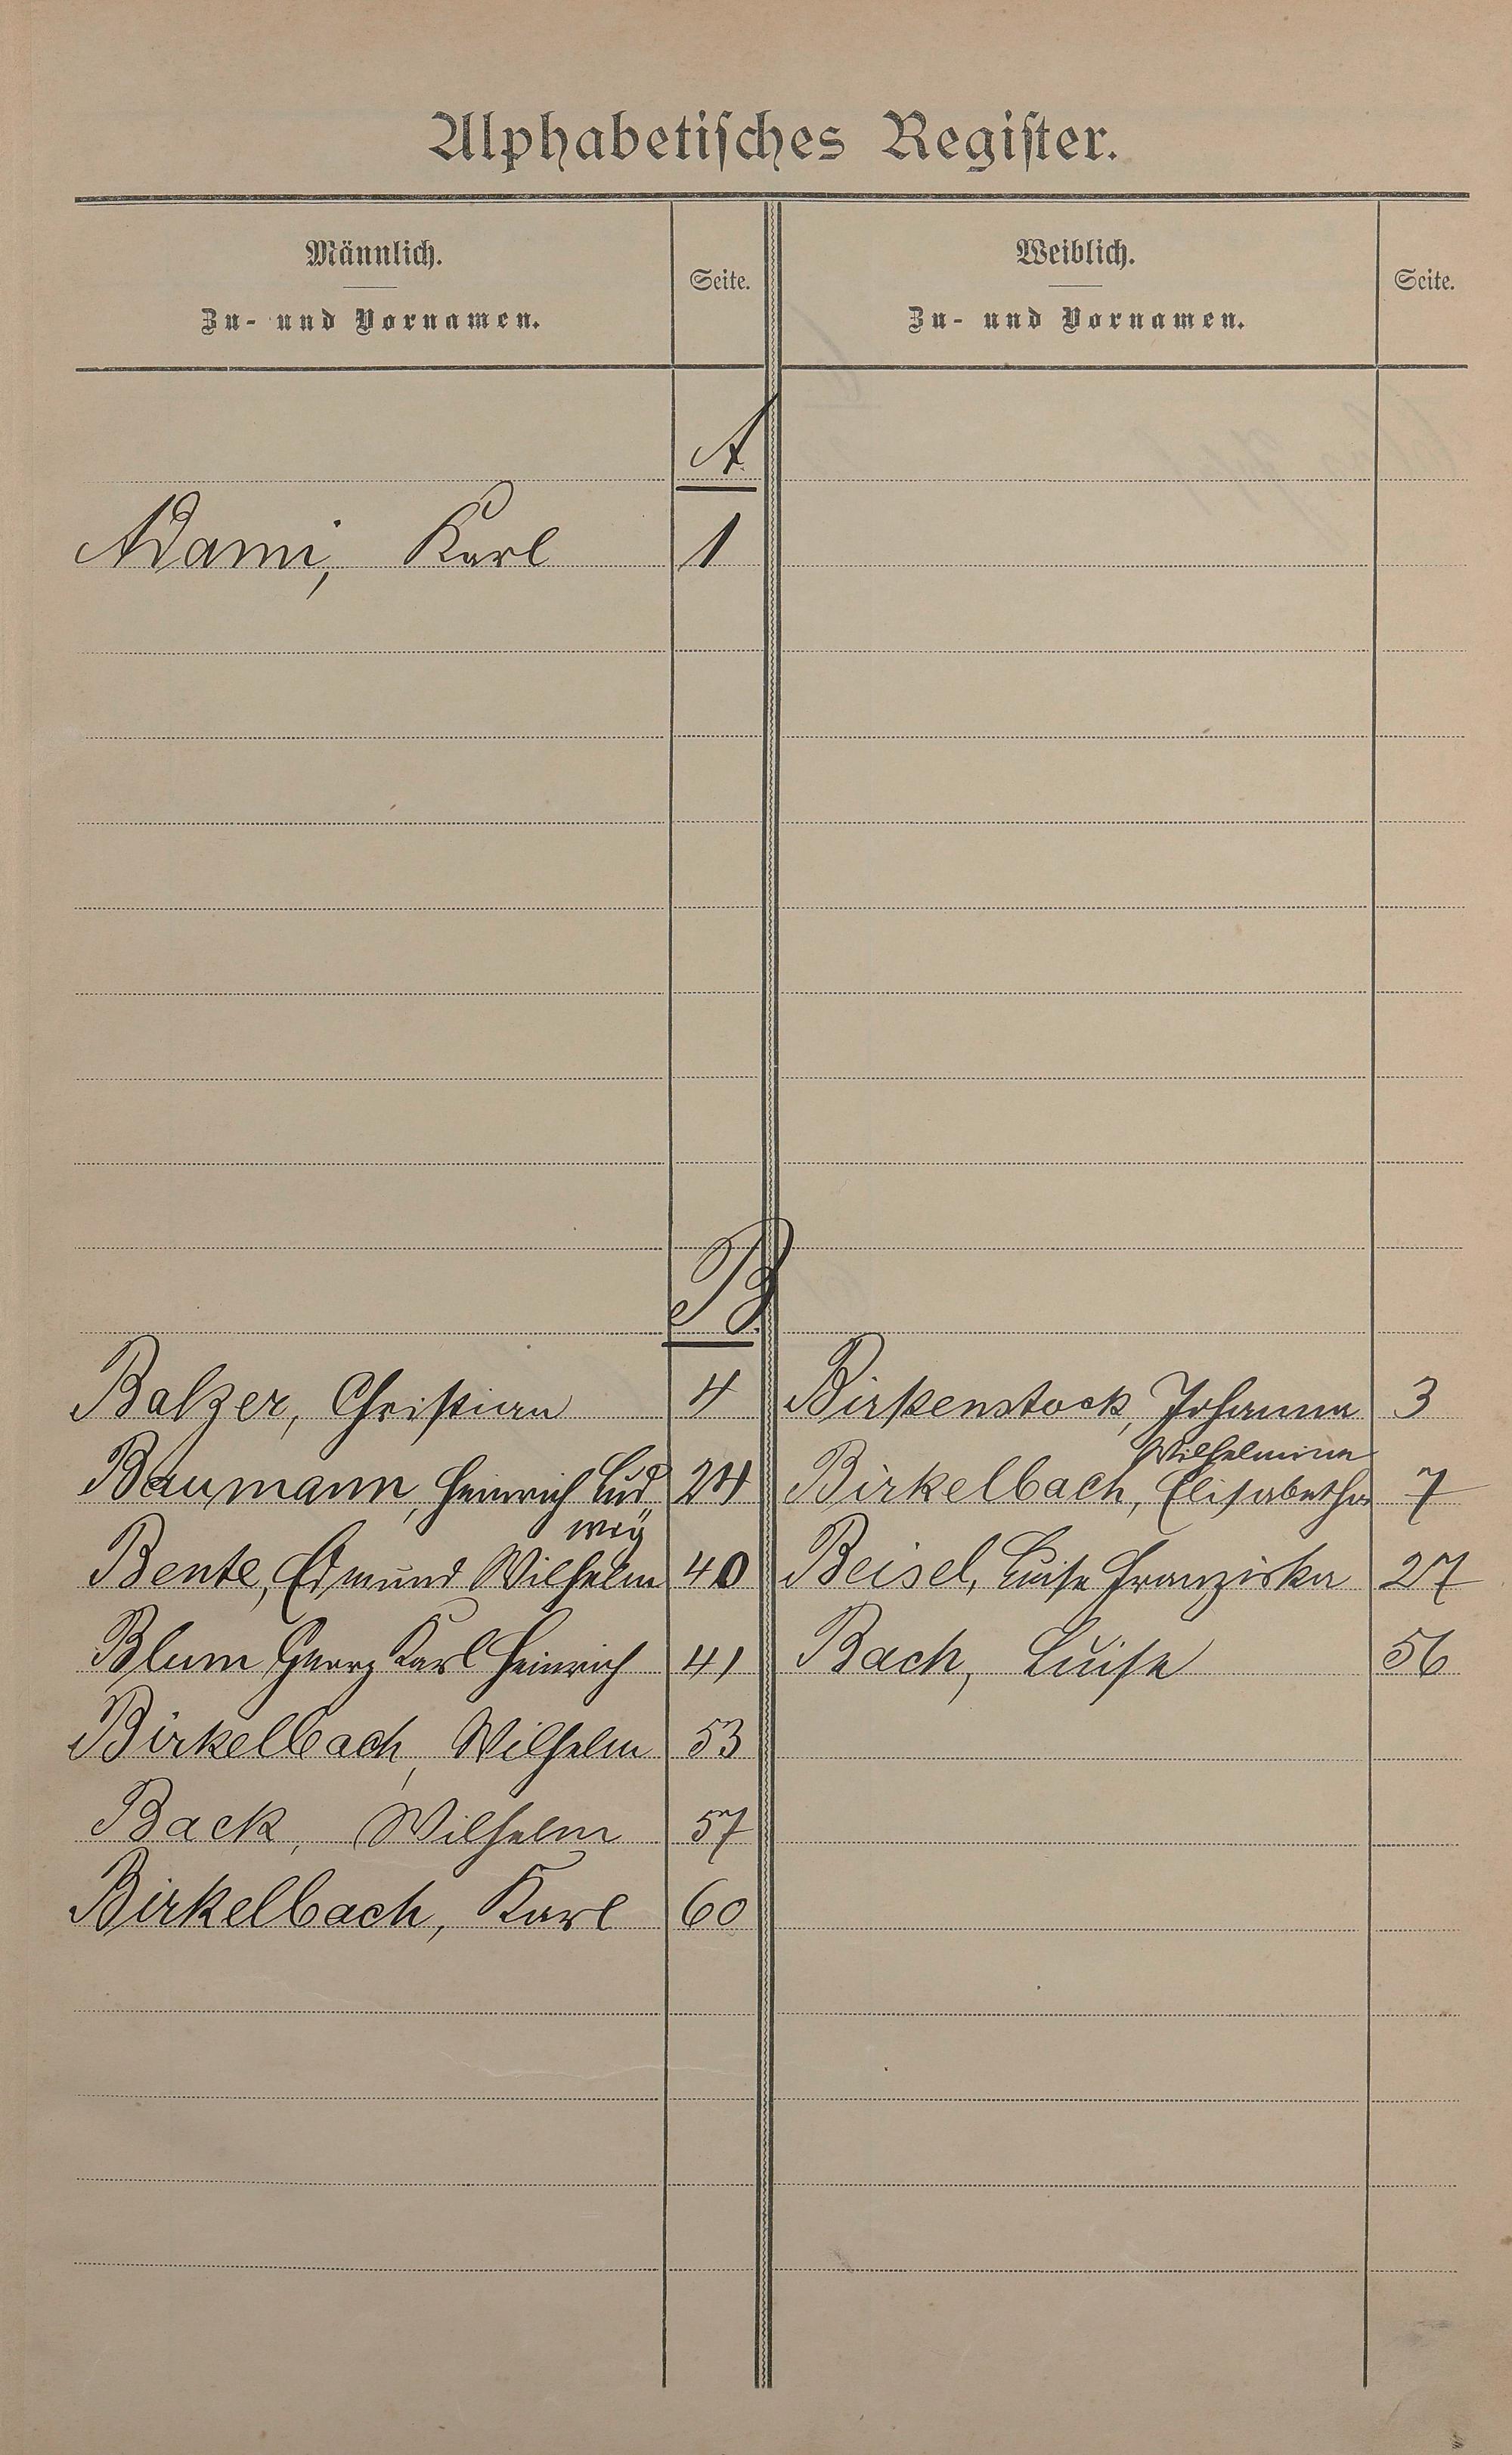 Alphabetisches Register.
Männlich.
Zu- und Vornamen.
Seite.
Weiblich.
Zu- und Vornamen.
Seite.
A
Adami, Karl 1
B.
Balzer, Christian 4 Birkenstock, Johanna 3
Wilhelmine
Baumann, Heinrich Lud 24 Birkelbach, Elisabetha 7
wig
Bente, Edmund Wilhelm 40 Beisel, Luise Franziska 27
Blum Georg Karl Heinrich 41 Bach, Luise 56
Birkelbach, Wilhelm 53
Back, Wilhelm 57
Birkelbach, Karl 60